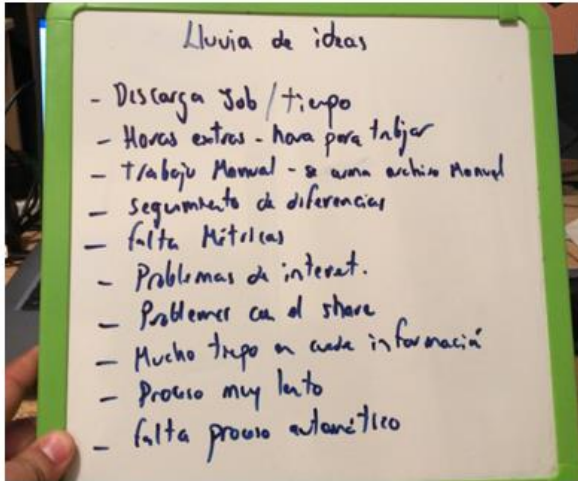 Lluvia de ideas
- Descarga Job / tiempo
- Horas extras - hora para trabjar
- Trabajo Manual - se arma archivo Manual
- seguimiento de diferencias
- falta Métricas
- Problemas de internet.
- Problemas con el share
- Mucho tiepo en información
- Proceso muy lento
- falta proceso automático